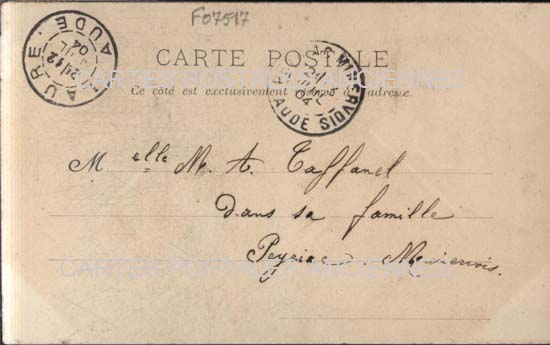 F07517
CARTE POSTALE
Ce côté est exclusivement réservé à l'adresse.
AUDE
12
04
MINERVOIS
AUDE
Melle M. A. Taffanel
Dans sa famille
Peyriac - Minervois.
CARTES POSTALES ANCIENNES
CARTES POSTALES ANCIENNES